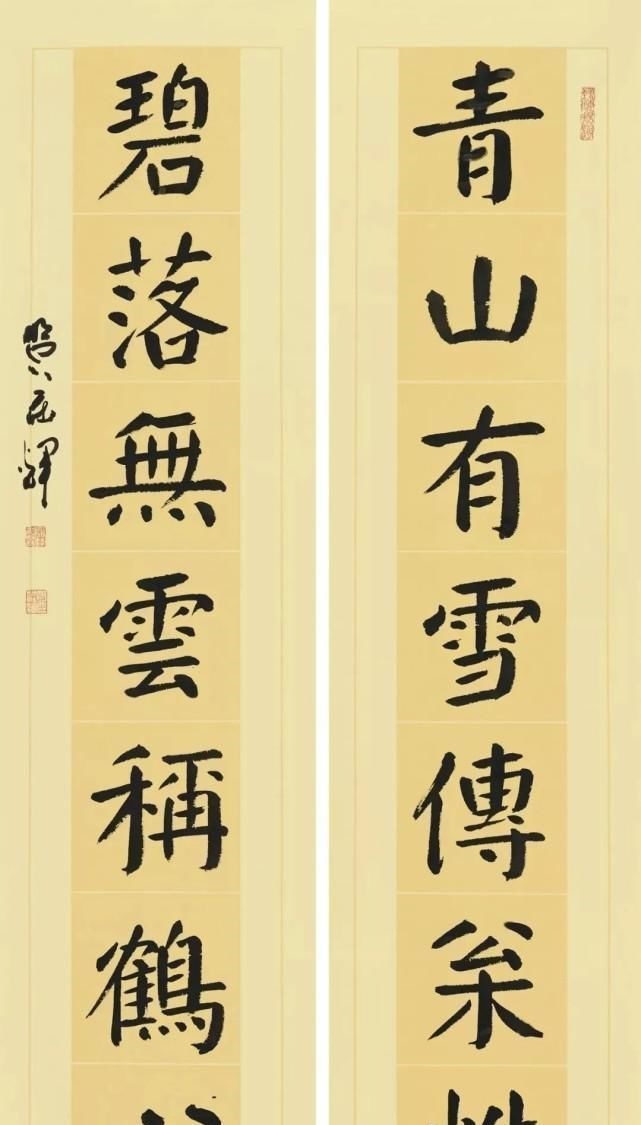 青山有雪傳枀
碧落無雲稱鶴